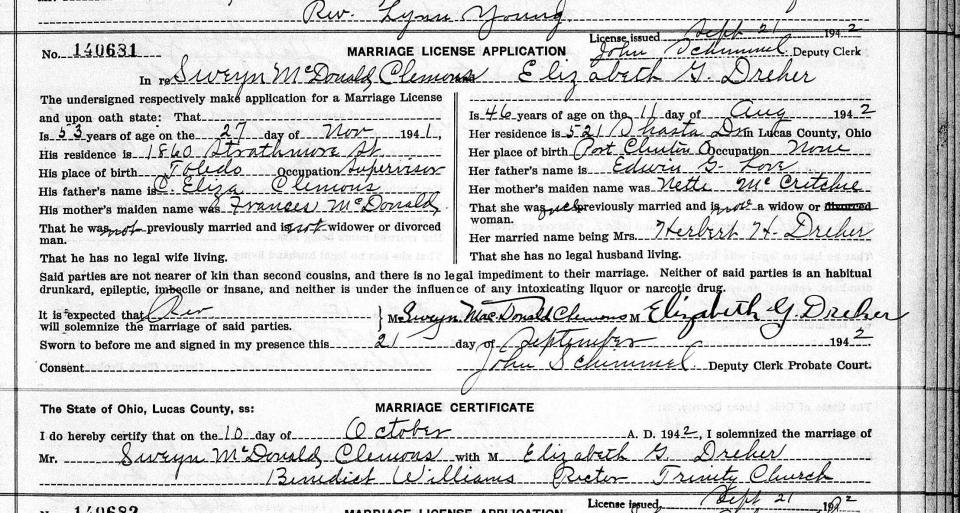 Rev. Lynn Young
License issued Sept 21 1942
No. 140631 MARRIAGE LICENSE APPLICATION John Schimmel. Deputy Clerk
In re Sweyn McDonald Clemons Elizabeth G. Dreher
The undersigned respectively make application for a Marriage License
and upon oath state: That
Is 53 years of age on the 27 day of Nov 1941,
His residence is 1860 Strathmore St
His place of birth Toledo Occupation Supervisor
His father's name is C. Eliza Clemons
His mother's maiden name was Frances McDonald
That he was not previously married and is not widower or divorced
man.
That he has no legal wife living.
Is 46 years of age on the 11 day of Aug 1942
Her residence is 521 Shasta Dr. in Lucas County, Ohio
Her place of birth Port Clinton O Occupation None
Her father's name is Edwin G. Love
Her mother's maiden name was Nette McCritchie
That she was once previously married and is now a widow or divorced
woman.
Her married name being Mrs. Herbert H. Dreher
That she has no legal husband living.
Said parties are not nearer of kin than second cousins, and there is no legal impediment to their marriage. Neither of said parties is an habitual
drunkard, epileptic, imbecile or insane, and neither is under the influence of any intoxicating liquor or narcotic drug.
It is expected that Rev
will solemnize the marriage of said parties.
M Sweyn MacDonald Clemons M Elizabeth G. Dreher
Sworn to before me and signed in my presence this 21 day of September 1942
Consent John Schimmel. Deputy Clerk Probate Court.
The State of Ohio, Lucas County, ss: MARRIAGE CERTIFICATE
I do hereby certify that on the 10 day of October A. D. 1942, I solemnized the marriage of
Mr. Sweyn McDonald Clemons with M Elizabeth G. Dreher
Benedict Williams Rector Trinity Church
License issued Sept 21 192
140682 MARRIAGE LICENSE APPLICATION